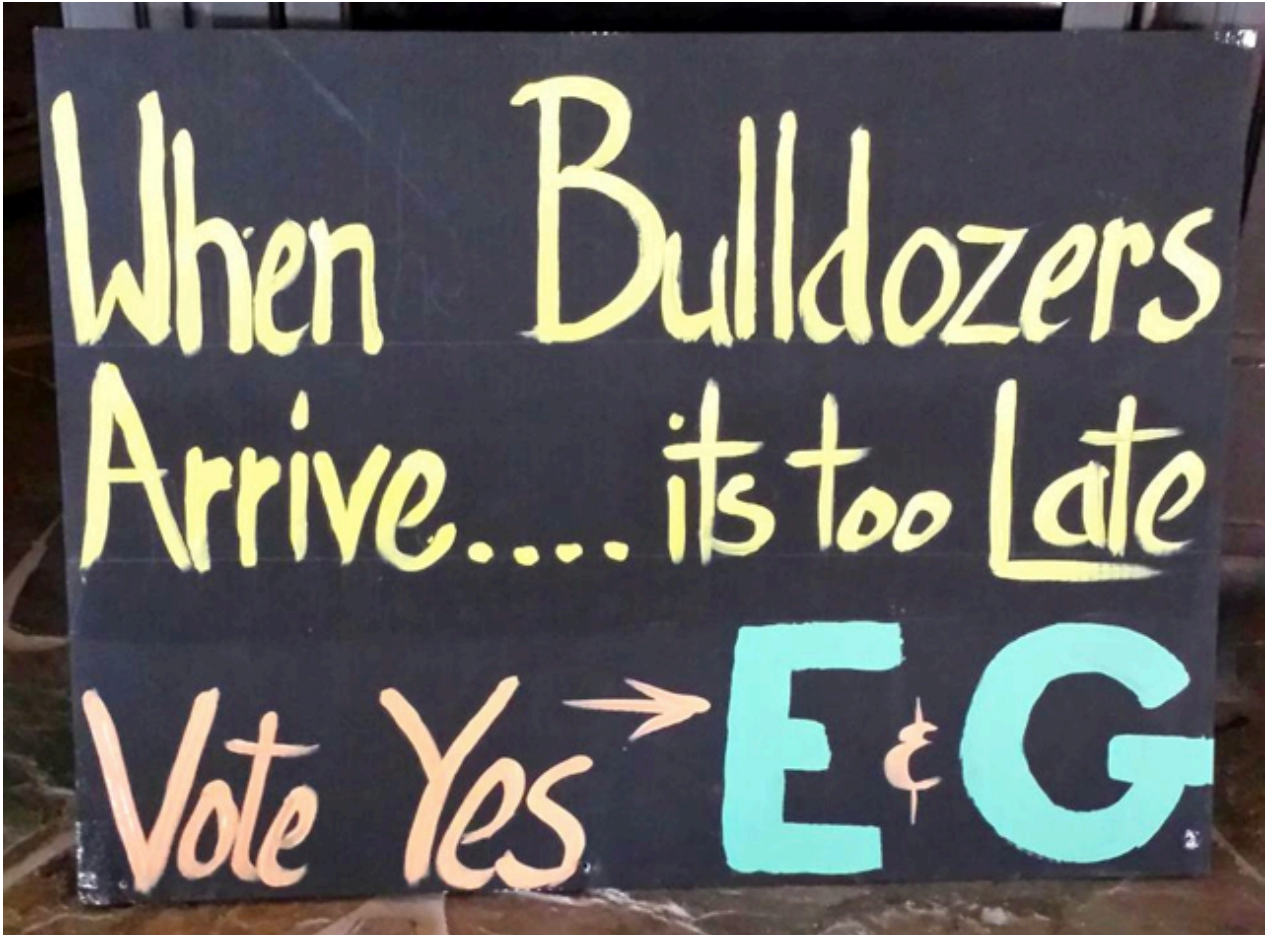 When Bulldozers
Arrive.... its too Late
Vote Yes → E & G